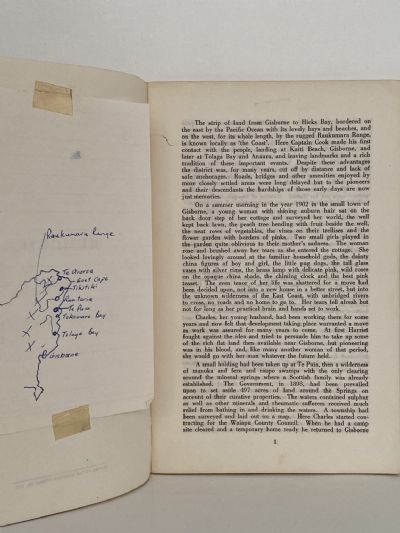 Raukumara Range
Te Araroa
East Cape
Tikitiki
Ruatoria
Te Puia
Tokomaru Bay
Tolaga Bay
Gisborne
The strip of land from Gisborne to Hicks Bay, bordered on
the east by the Pacific Ocean with its lovely bays and beaches, and
on the west, for its whole length, by the rugged Raukumara Range,
is known locally as 'the Coast'. Here Captain Cook made his first
contact with the people, landing at Kaiti Beach, Gisborne, and
later at Tolaga Bay and Anaura, and leaving landmarks and a rich
tradition of these important events. Despite these advantages
the district was, for many years, cut off by distance and lack of
safe anchorages. Roads, bridges and other amenities enjoyed by
more closely settled areas were long delayed but to the pioneers
and their descendants the hardships of those early days are now
just memories.
On a summer morning in the year 1902 in the small town of
Gisborne, a young woman with shining auburn hair sat on the
back door step of her cottage and surveyed her world, the well
kept back lawn, the peach tree bending with fruit beside the well,
the neat rows of vegetables, the vines on their trellises and the
flower garden with borders of pinks. Two small girls played in
the garden quite oblivious to their mother's sadness. The woman
rose and brushed away her tears as she entered the cottage. She
looked lovingly around at the familiar household gods, the dainty
china figures of boy and girl, the little pug dogs, the tall glass
vases with silver rims, the brass lamp with delicate pink, wild roses
on the opaque china shade, the chiming clock and the best pink
teaset. The even tenor of her life was shattered for a move had
been decided upon, not into a new house in a better street, but into
the unknown wilderness of the East Coast, with unbridged rivers
to cross, no roads and no home to go to. Her tears fell afresh but
not for long as her practical brain and hands set to work.
Charles, her young husband, had been working there for some
years and now felt that development taking place warranted a move
as work was assured for many years to come. At first Harriet
fought against the idea and tried to persuade him to take up some
of the rich flat land then available near Gisborne, but pioneering
was in his blood, and, like many another woman of that period,
she would go with her man whatever the future held.
A small holding had been taken up at Te Puia, then a wilderness
of manuka and fern and raupo swamps with the only clearing
around the mineral springs where a Scottish family was already
established. The Government, in 1898, had been prevailed
upon to set aside 497 acres of land around the Springs on
account of their curative properties. The waters contained sulphur
as well as other minerals and rheumatic sufferers received much
relief from bathing in and drinking the waters. A township had
been surveyed and laid out on a map. Here Charles started con-
tracting for the Waiapu County Council. When he had a camp
site cleared and a temporary home ready he returned to Gisborne
1